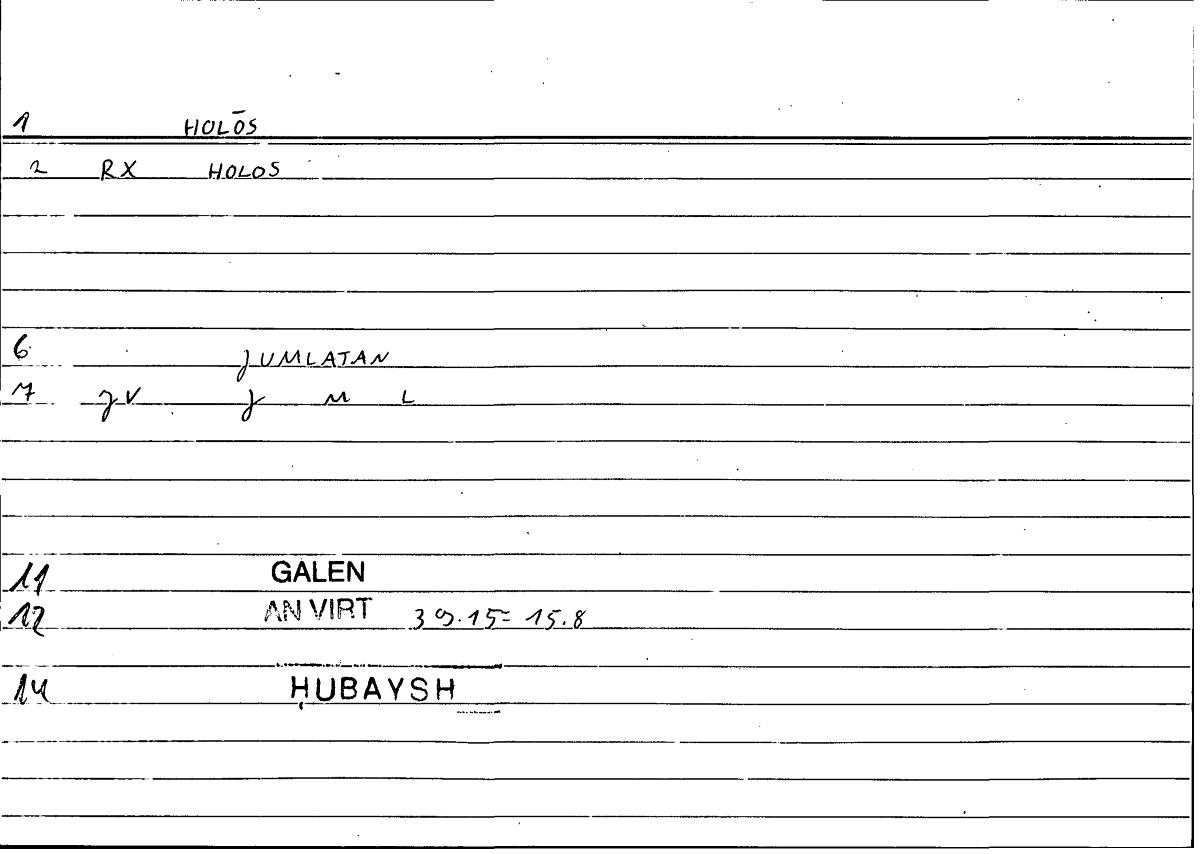 1 HOLŌS
2 RX HOLOS
6 JUMLATAN
7 JV J M L
11 GALEN
12 AN VIRT 39.15= 15.8
14 ḤUBAYSH